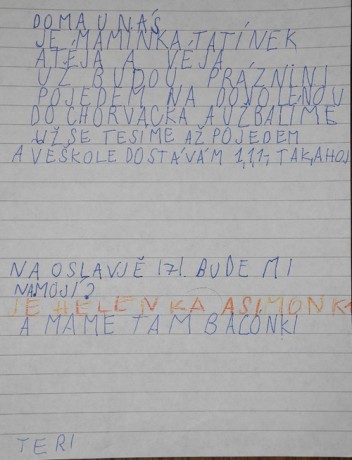 DOMA U NÁS
JE MAMINKA TATÍNEK
ATĚJA A VĚJA
UŽ BUDOU PRÁZNINI
POJEDEM NA DOVOLENOU
DO CHORVACKA A UŽ BALÍME
UŽ SE TESIME AŽ POJEDEM
A VEŠKOLE DOSTÁVÁM 1,1,1, TAK, AHOJ
NA OSLAVJĚ 171. BUDE MI
NAMOJÍ?
JE HELENKA ASIMONKA
A MÁME TAM BALÓNKI
TERI